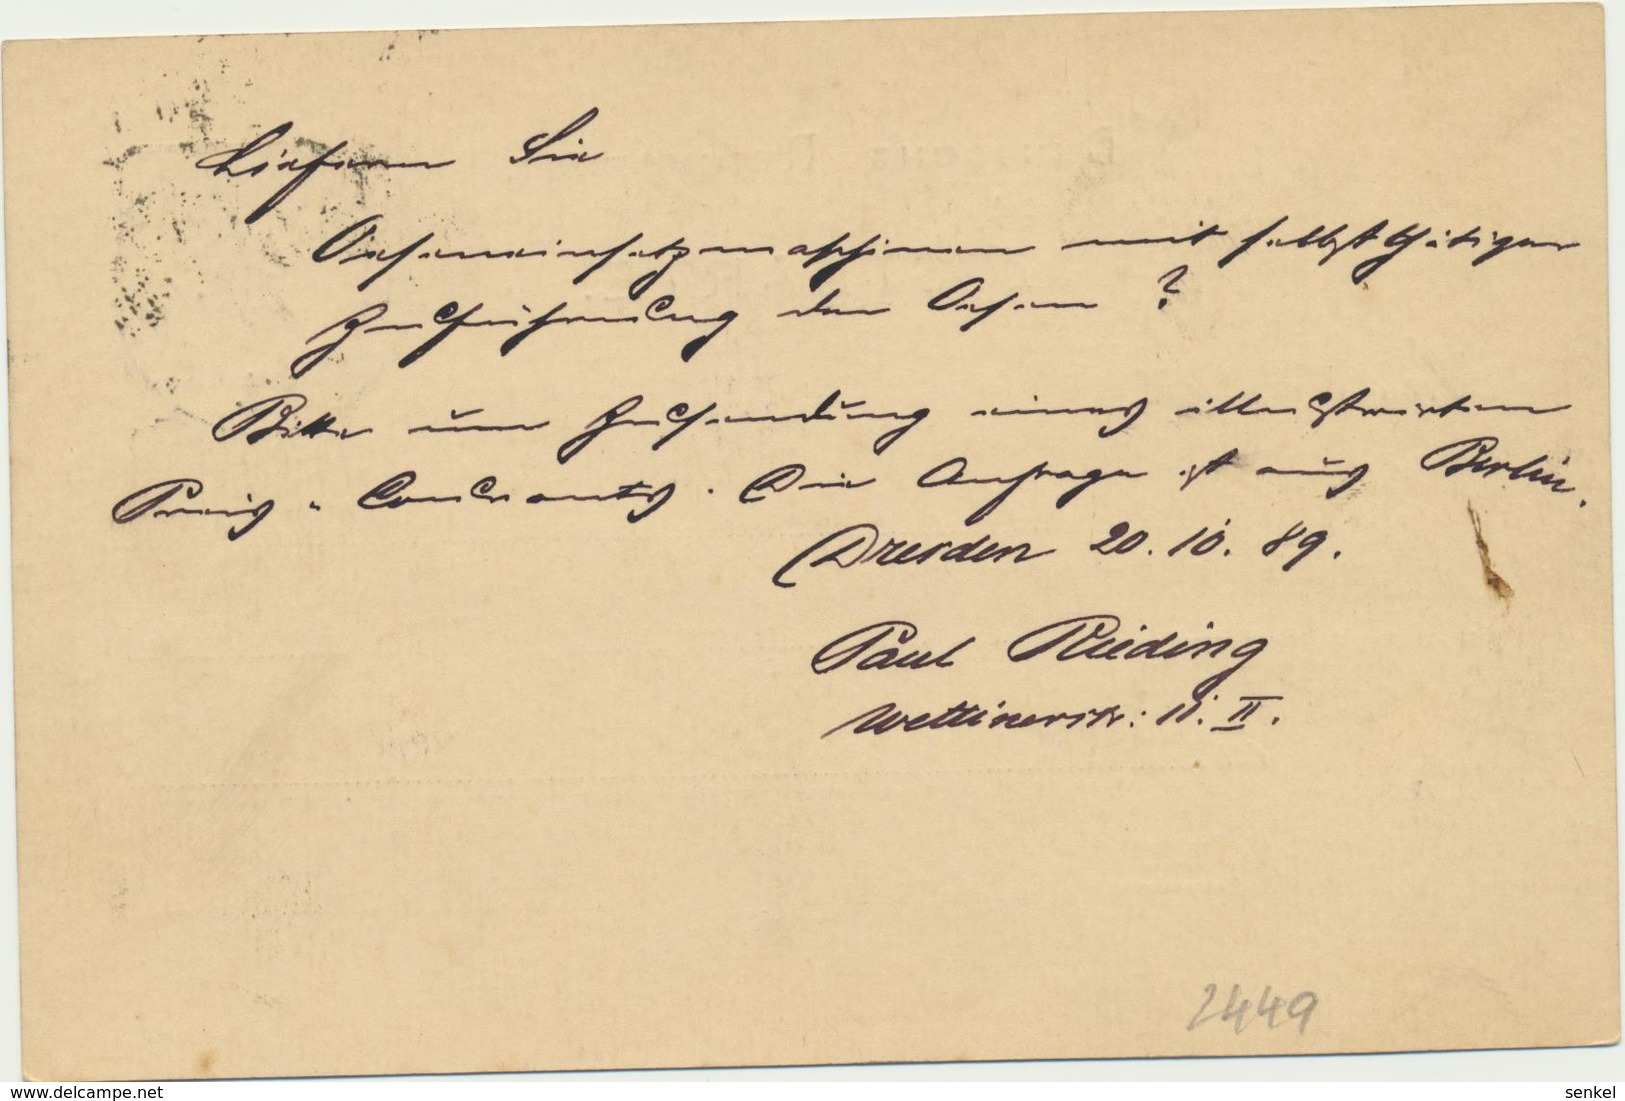 Liefern Sie
Oeseneinsetzmaschinen mit selbstthätiger
Zuführung der Oesen ?
Bitte um Zusendung eines illustrirten
Preis-Courants. Die Anfrage ist aus Berlin.
Dresden 20.10.89.
Paul Rieding
Wettinerstr: 11. II.
2449
senkel